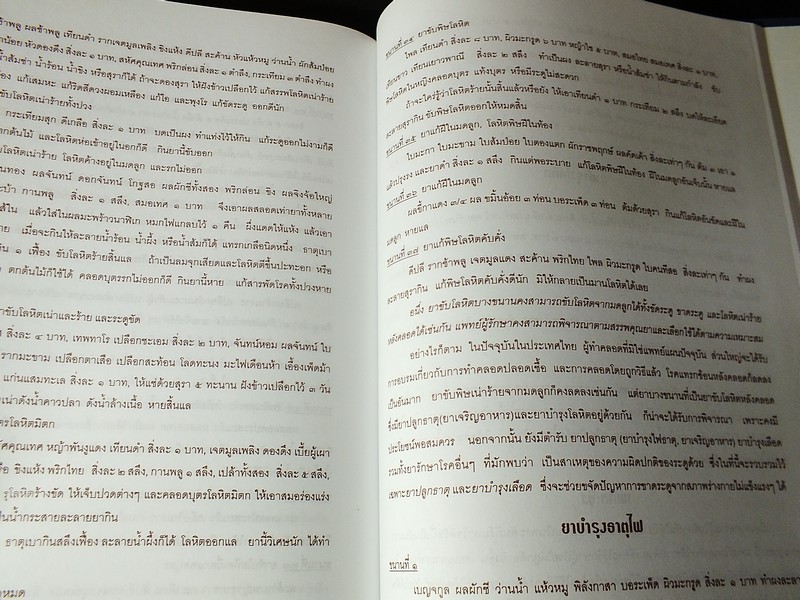 ช้าพลู ผลช้าพลู เทียนดำ รากเจตมูลเพลิง ขิงแห้ง ดีปลี สะค้าน หัวแห้วหมู ว่านน้ำ ผักส้มป่อย
น้อย หัวดองดึง สิ่งละ ๑ บาท, มหัศคุณเทศ พริกล่อน สิ่งละ ๑ ตำลึง, กระเทียม ๓ ตำลึง ทำผง
น้ำส้มซ่า น้ำร้อน น้ำขิง หรือสุราก็ได้ ถ้าจะดองสุรา ให้ฝังข้าวเปลือกไว้ แก้สรรพโลหิตเน่าร้าย
ง แก้เสมหะ แก้ริดสีดวงผอมเหลือง แก้ไอ และพุงโร แก้ขัดระดู ออกดีนัก
ขับโลหิตเน่าร้ายทั้งปวง
กระเทียมสุก ดีเกลือ สิ่งละ ๑ บาท บดเป็นผง ทำแท่งไว้ให้กิน แก้ระดูออกไม่งามก็ดี
กตกต้นไม้ และโลหิตห่อเข้าอยู่ในอกก็ดี กินยานี้ขับออก
โลหิตเน่าร้าย โลหิตค้างอยู่ในมดลูก และรกไม่ออก
ทอง ผลจันทน์ ดอกจันทน์ โกฐสอ ผลผักชีทั้งสอง พริกล่อน ขิง ผลจิงจ้อใหญ่
ะบ้า กานพลู สิ่งละ ๑ สลึง, สมอเทศ ๑ บาท จึงเอาผลสลอดเท่ายาทั้งหลาย
ไส้ใน แล้วใส่ในผลมะพร้าวนาฬิเก หมกไฟแกลบไว้ ๑ คืน ผึ่งแดดให้แห้ง แล้วเอา
าย เมื่อจะกินให้ละลายน้ำร้อน น้ำผึ้ง หรือน้ำส้มก็ได้ แทรกเกลือนิดหนึ่ง ธาตุเบา
น ๑ เฟื้อง ขับโลหิตร้ายสิ้นแล ถ้าเป็นลมจุกเสียดและโลหิตตีขึ้นปะทะอก หรือ
ตกต้นไม้ก็ใช้ได้ คลอดบุตรรกไม่ออกก็ดี กินยานี้หาย แก้สารพัดโรคทั้งปวงหาย
าขับโลหิตเน่าและร้าย และระดูขัด
สิ่งละ ๔ บาท, เทพทาโร เปลือกชะเอม สิ่งละ ๒ บาท, จันทน์หอม ผลจันทน์ ใบ
รากมะขาม เปลือกตาเสือ เปลือกสะท้อน โลดทะนง มะไฟเดือนห้า เอื้องเพ็ดม้า
แก่นแสมทะเล สิ่งละ ๑ บาท, ให้แช่ด้วยสุรา ๕ ทะนาน ฝังข้าวเปลือกไว้ ๓ วัน
เน่าดังน้ำคาวปลา ดังน้ำล้างเนื้อ หายสิ้นแล
ตรโลหิตมิตก
หัศคุณเทศ หญ้าพันงูแดง เทียนดำ สิ่งละ ๑ บาท, เจตมูลเพลิง ดองดึง เบี้ยผู้เผา
อ ขิงแห้ง พริกไทย สิ่งละ ๒ สลึง, กานพลู ๑ สลึง, เปล้าทั้งสอง สิ่งละ ๕ สลึง,
รุโลหิตร้างขัด ให้เจ็บปวดต่างๆ และคลอดบุตรโลหิตมิตก ให้เอาสมอร่องแร่ง
ป็นน้ำกระสายละลายยากิน
ธาตุเบากินสลึงเฟื้อง ละลายน้ำผึ้งก็ได้ โลหิตออกแล ยานี้วิเศษนัก ได้ทำ
ขนานที่ ๓๔ ยาขับพิษโลหิต
ไพล เทียนดำ สิ่งละ ๘ บาท, ผิวมะกรูด ๖ บาท หญ้าไซ ๕ บาท, สมอไทย สมอเทศ สิ่งละ ๑ บาท,
เทียนขาว เทียนเยาวพาณี สิ่งละ ๒ สลึง ทำเป็นผง ละลายสุรา หรือน้ำส้มซ่า ให้กินตามกำลัง ขับ
พิษโลหิตในหญิงคลอดบุตร แท้งบุตร หรือมีระดูไม่สะดวก
ถ้าจะใคร่รู้ว่าโลหิตร้ายนั้นสิ้นแล้วหรือยัง ให้เอาเทียนดำ ๑ บาท กระเทียม ๒ สลึง บดให้ละเอียด
ละลายสุรากิน ขับพิษโลหิตออกให้หมดสิ้น
ขนานที่ ๓๕ ยาแก้ฝีในมดลูก, โลหิตพิษฝีในท้อง
ใบมะกา ใบมะขาม ใบส้มป่อย ใบตองแตก ผักราชพฤกษ์ ผลคัดเค้า สิ่งละเท่าๆ กัน ต้ม ๓ เอา ๑
แล้วปรุงรง และยาดำ สิ่งละ ๑ สลึง กินแต่พอระบาย แก้โลหิตพิษฝีในท้อง ฝีในมดลูกอันเจ็บนั้น หายแล
ขนานที่ ๓๖ ยาแก้ฝีในมดลูก
ผลขี้กาแดง ๓/๔ ผล ขมิ้นอ้อย ๓ ท่อน บอระเพ็ด ๓ ท่อน ต้มด้วยสุรา กินแก้โลหิตอันขัดและฝีใน
มดลูก หายแล
ขนานที่ ๓๗ ยาแก้พิษโลหิตคับคั่ง
ดีปลี รากช้าพลู เจตมูลแดง สะค้าน พริกไทย ไพล ผิวมะกรูด ใบคนทีสอ สิ่งละเท่าๆ กัน ทำผง
ละลายสุรากิน แก้พิษโลหิตคับคั่งดีนัก มิให้กลายเป็นมานโลหิตได้เลย
อนึ่ง ยาขับโลหิตบางขนานคงสามารถขับโลหิตจากมดลูกได้ทั้งขัดระดู ขาดระดู และโลหิตเน่าร้าย
หลังคลอดได้เช่นกัน แพทย์ผู้รักษาคงสามารถพิจารณาตามสรรพคุณยาและเลือกใช้ได้ตามความเหมาะสม
อย่างไรก็ตาม ในปัจจุบันในประเทศไทย ผู้ทำคลอดที่มิใช่แพทย์แผนปัจจุบัน ส่วนใหญ่จะได้รับ
การอบรมเกี่ยวกับการทำคลอดปลอดเชื้อ และการคลอดโดยถูกวิธีแล้ว โรคแทรกซ้อนหลังคลอดก็ลดลง
เป็นอันมาก ยาขับพิษเน่าร้ายจากมดลูกก็คงลดลงเช่นกัน แต่ยาบางขนานที่เป็นยาขับโลหิตหลังคลอด
ซึ่งมียาปลูกธาตุ(ยาเจริญอาหาร)และยาบำรุงโลหิตอยู่ด้วยกัน ก็น่าจะได้รับการพิจารณา เพราะคงมี
ประโยชน์พอสมควร นอกจากนั้น ยังมีตำรับ ยาปลูกธาตุ (ยาบำรุงไฟธาตุ, ยาเจริญอาหาร) ยาบำรุงเลือด
รวมทั้งยารักษาโรคอื่นๆ ที่มักพบว่า เป็นสาเหตุของความผิดปกติของระดูด้วย ซึ่งในที่นี้จะรวบรวมไว้
เฉพาะยาปลูกธาตุ และยาบำรุงเลือด ซึ่งจะช่วยขจัดปัญหาการขาดระดูจากสภาพร่างกายไม่แข็งแรงๆ ได้
ยาบำรุงธาตุไฟ
ขนานที่ ๑
เบญจกูล ผลผักชี ว่านน้ำ แห้วหมู พิลังกาสา บอระเพ็ด ผิวมะกรูด สิ่งละ ๑ บาท ทำผงละลา